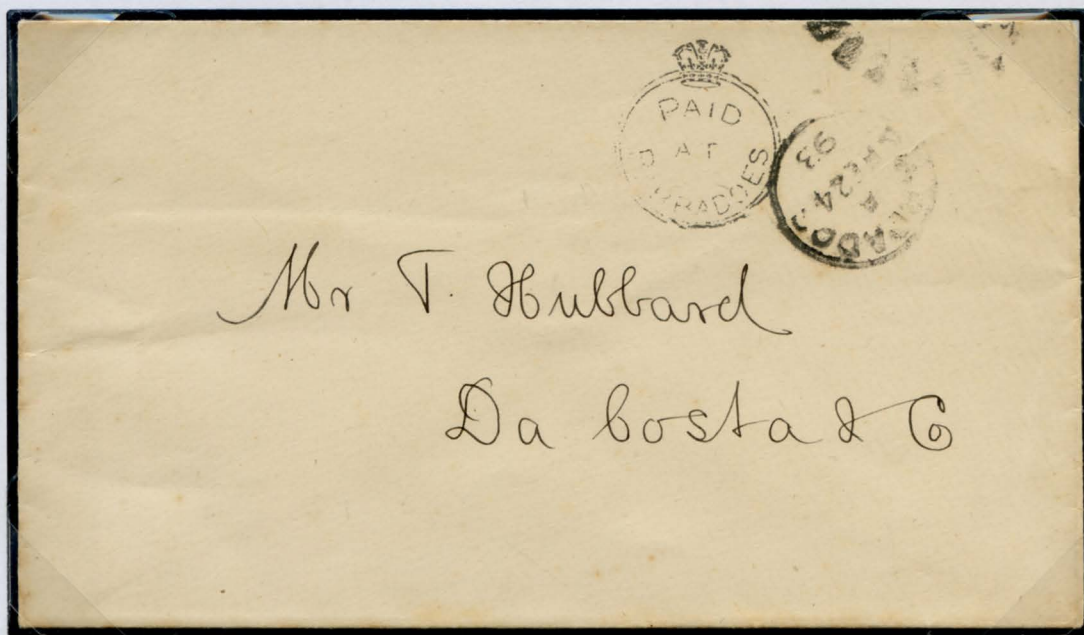 PAID
AT
BARBADOES
BARBADOS
A
24
93
Mr T. Hubbard
Da Costa & Co